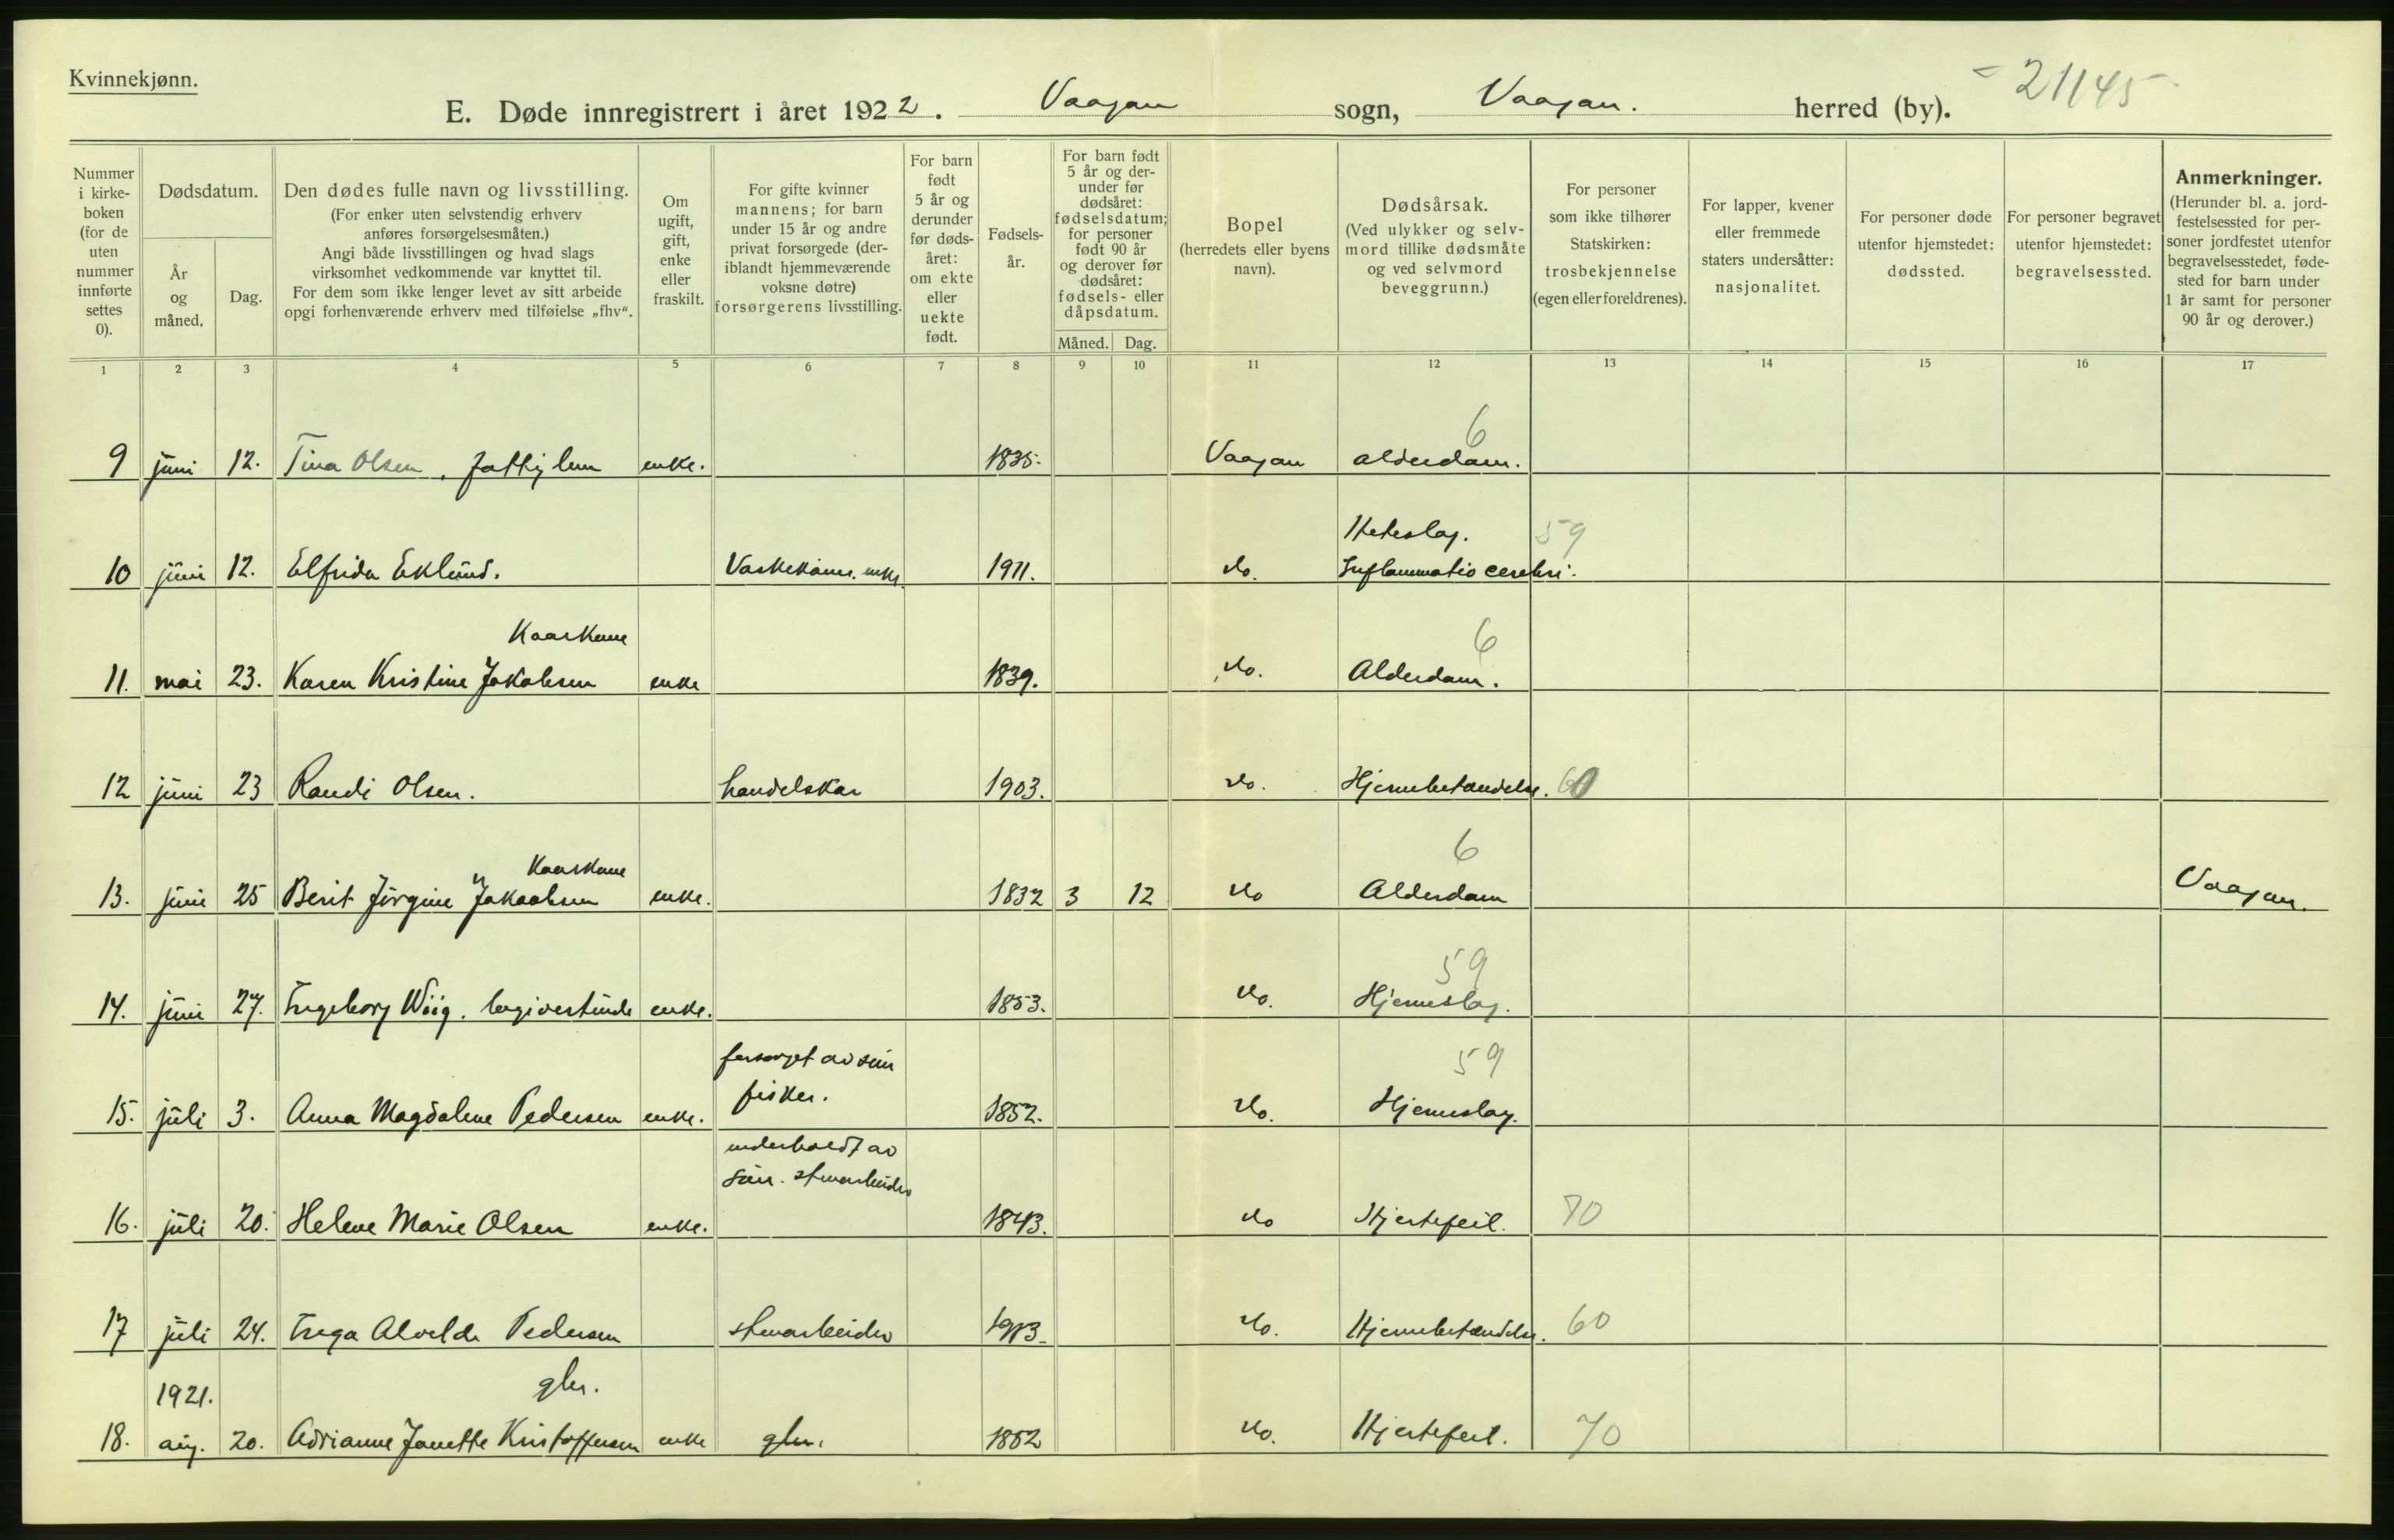 Kvinnekjønn.
E. Døde innregistrert i året 1922. Vaagan sogn, Vaagan. herred (by).
21145
Nummer i kirkeboken (for de uten nummer innførte settes 0).
Dødsdatum.
År og måned.
Dag.
Den dødes fulle navn og livsstilling.
(For enker uten selvstendig erhverv
anføres forsørgelsesmåten.)
Angi både livsstillingen og hvad slags
virksomhet vedkommende var knyttet til.
For dem som ikke lenger levet av sitt arbeide
opgi forhenværende erhverv med tilføielse „fhv“.
Om ugift, gift, enke eller fraskilt.
For gifte kvinner
mannens; for barn
under 15 år og andre
privat forsørgede (der-
iblandt hjemmeværende
voksne døtre)
forsørgerens livsstilling.
For barn født 5 år og derunder før dødsåret: om ekte eller uekte født.
Fødsels-
år.
For barn født
5 år og der-
under før
dødsåret:
fødselsdatum;
for personer
født 90 år
og derover før
dødsåret:
fødsels- eller
dåpsdatum.
Måned. Dag.
Bopel
(herredets eller byens
navn).
Dødsårsak.
(Ved ulykker og selv-
mord tillike dødsmåte
og ved selvmord
beveggrunn.)
For personer
som ikke tilhører
Statskirken:
trosbekjennelse
(egen eller foreldrenes).
For lapper, kvener
eller fremmede
staters undersåtter:
nasjonalitet.
For personer døde
utenfor hjemstedet:
dødssted.
For personer begravet
utenfor hjemstedet:
begravelsessted.
Anmerkninger.
(Herunder bl. a. jord-
festelsessted for per-
soner jordfestet utenfor
begravelsesstedet, føde-
sted for barn under
1 år samt for personer
90 år og derover.)
1 2 3 4 5 6 7 8 9 10 11 12 13 14 15 16 17
6
9 juni 12. Tina Olsen, fattiglem enke. 1835. Vaagan alderdom.
Heteslag. 59
10 juni 12. Elfrida Eklund. Vaskekone. enke. 1911. do. Inflammatio cerebri.
Kaarkone 6
11. mai 23. Karen Kristine Jakobsen enke 1839. do. Alderdom.
12 juni 23 Randi Olsen. handelskar 1903. do. Hjernebetændelse. 60
Kaarkone 6
13. juni 25 Berit Jørgine Jakobsen enke. 1832 3 12 do Alderdom Vaagan.
59
14. juni 27. Ingeborg Wiig. logivertinde enke. 1853. do. Hjerneslag.
forsørget av søn 59
fisker.
15. juli 3. Anna Magdalene Pedersen enke. 1852. do. Hjerneslag.
underholdt av
søn. stenarbeider
16. juli 20. Helene Marie Olsen enke. 1843. do Hjertefeil. 70
17 juli 24. Inga Alvelde Pedersen stenarbeider 1913. do. Hjernebetændelse. 60
1921. gbr.
18. aug. 20. Adrianne Janette Kristoffersen enke gbr. 1852 do. Hjertefeil. 70